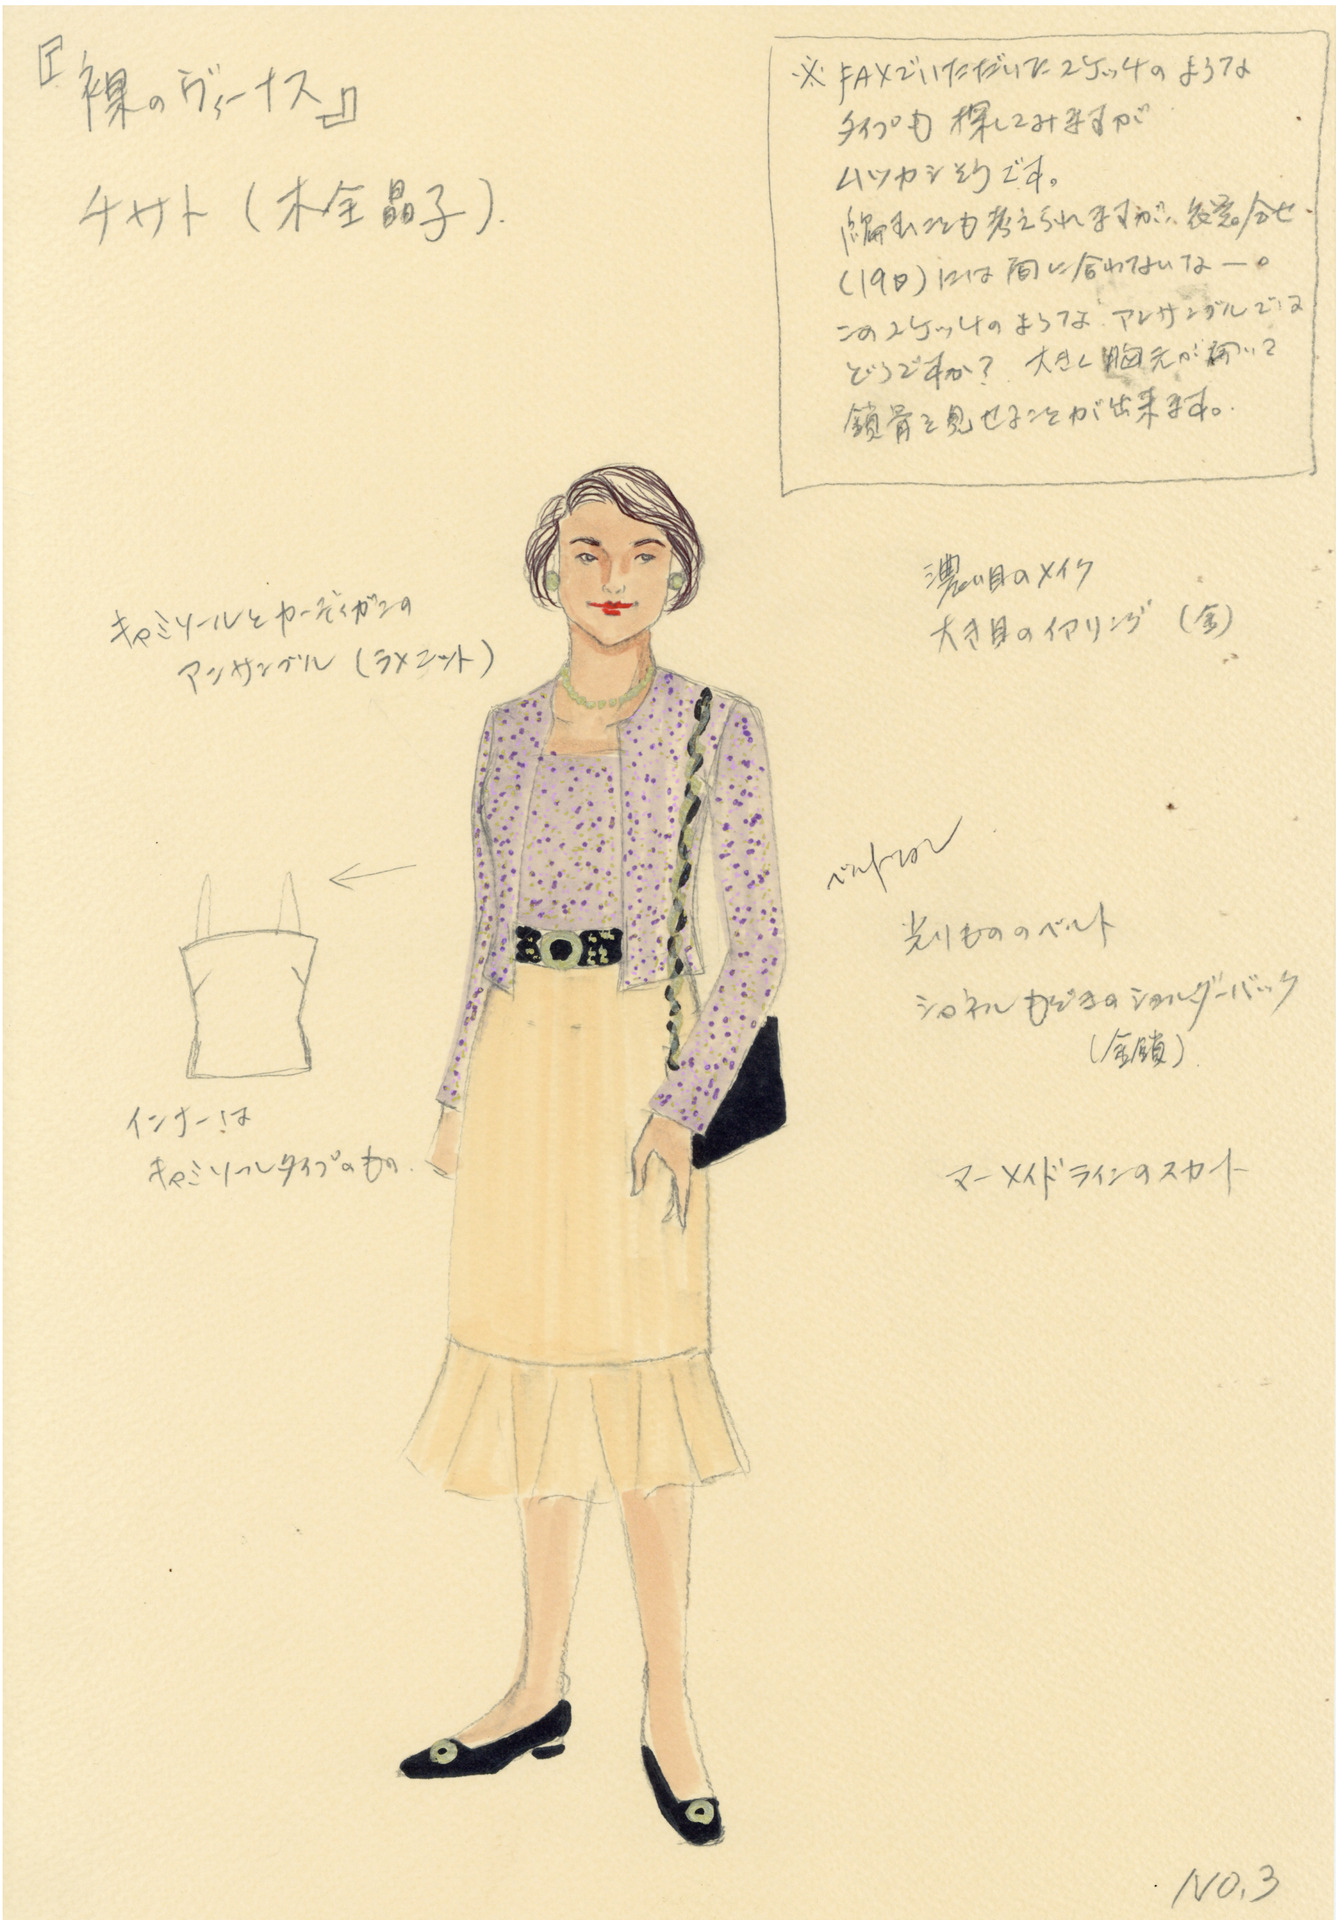 『裸のヴィーナス』
チサト(木全晶子).
※FAXでいただいたスケッチのような
タイプも探してみますが
ムツカシそうです。
編むことも考えられますが、衣裳合せ
(19日)には間に合わないなー。
このスケッチのような アンサンブルでは
どうですか? 大きく胸元が開いて
鎖骨を見せることが出来ます。
濃い目のメイク
大き目のイアリング (金)
キャミソールとカーディガンの
アンサンブル(ラメニット)
光りもののベルト
シャネルもどきのショルダーバック
(金鎖)
インナーは
キャミソールタイプのもの.
マーメイドラインのスカート
NO.3